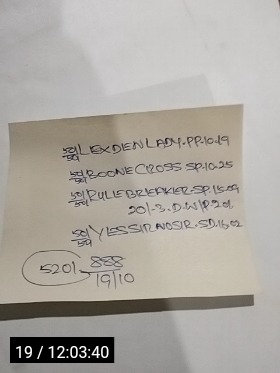 LEXDEN LADY.PP.10.19
BOONE CROSS SP.10.25
RULE BREAKER.SP.15.09
201-3.D.W/P.201
YES SIR NO SIR.SD.15.02
5201 888
19/10
19 / 12:03:40